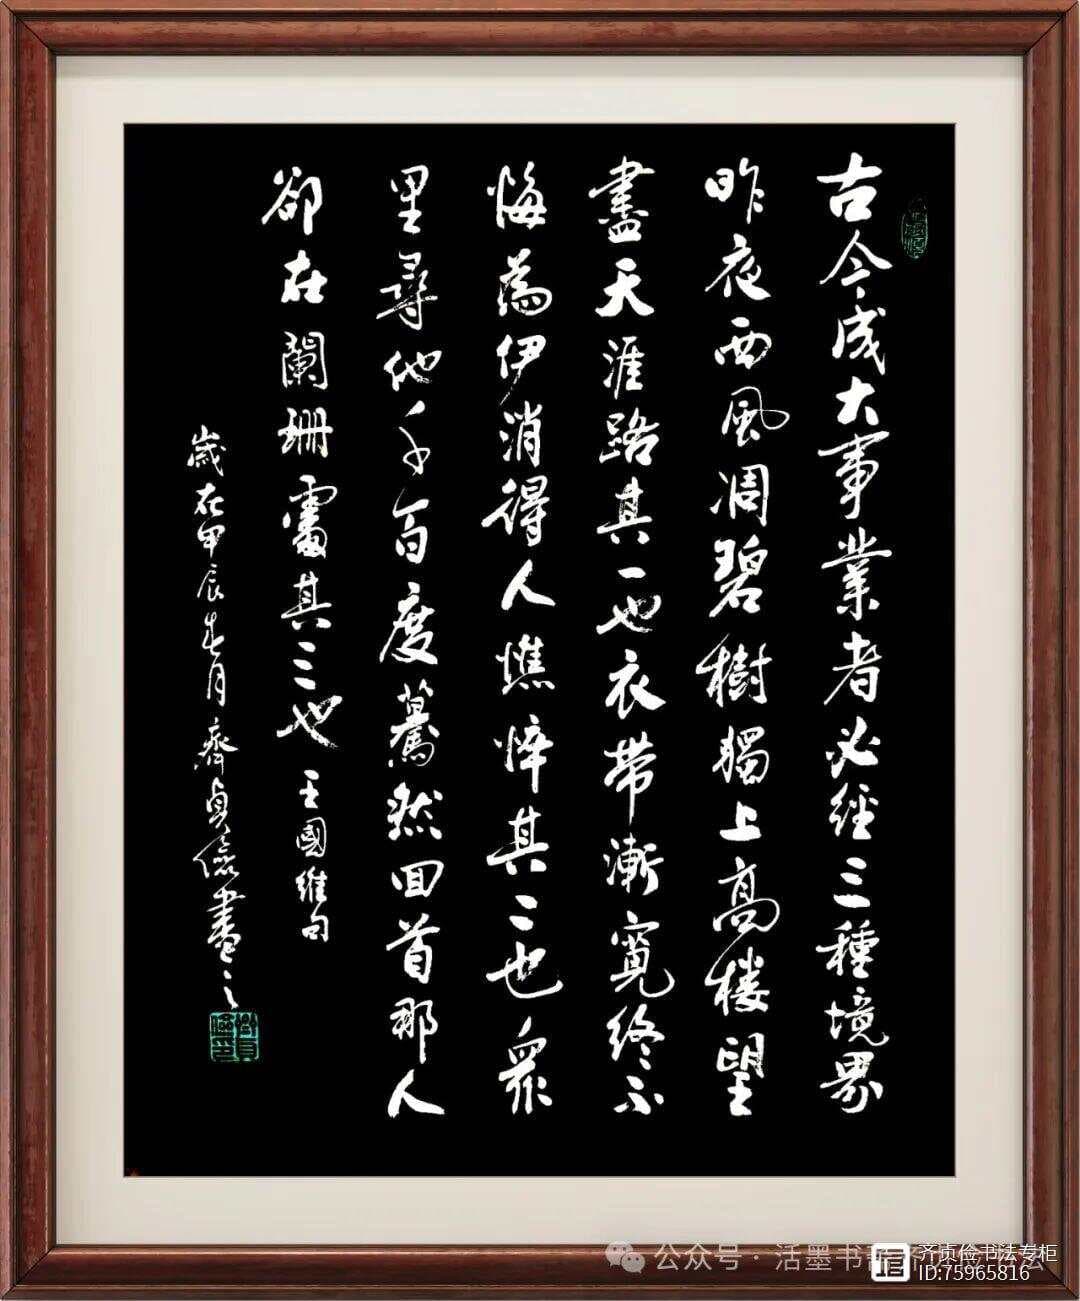 古今成大事業者必經三種境界
昨夜西風凋碧樹獨上高樓望
盡天涯路其一也衣帶漸寬終不
悔為伊消得人憔悴其二也眾
里尋他千百度驀然回首那人
卻在闌珊處其三也王國維句
歲在甲辰春月齊貞儉書之
公众号·活墨书
齐贞俭书法专柜
ID:75965816